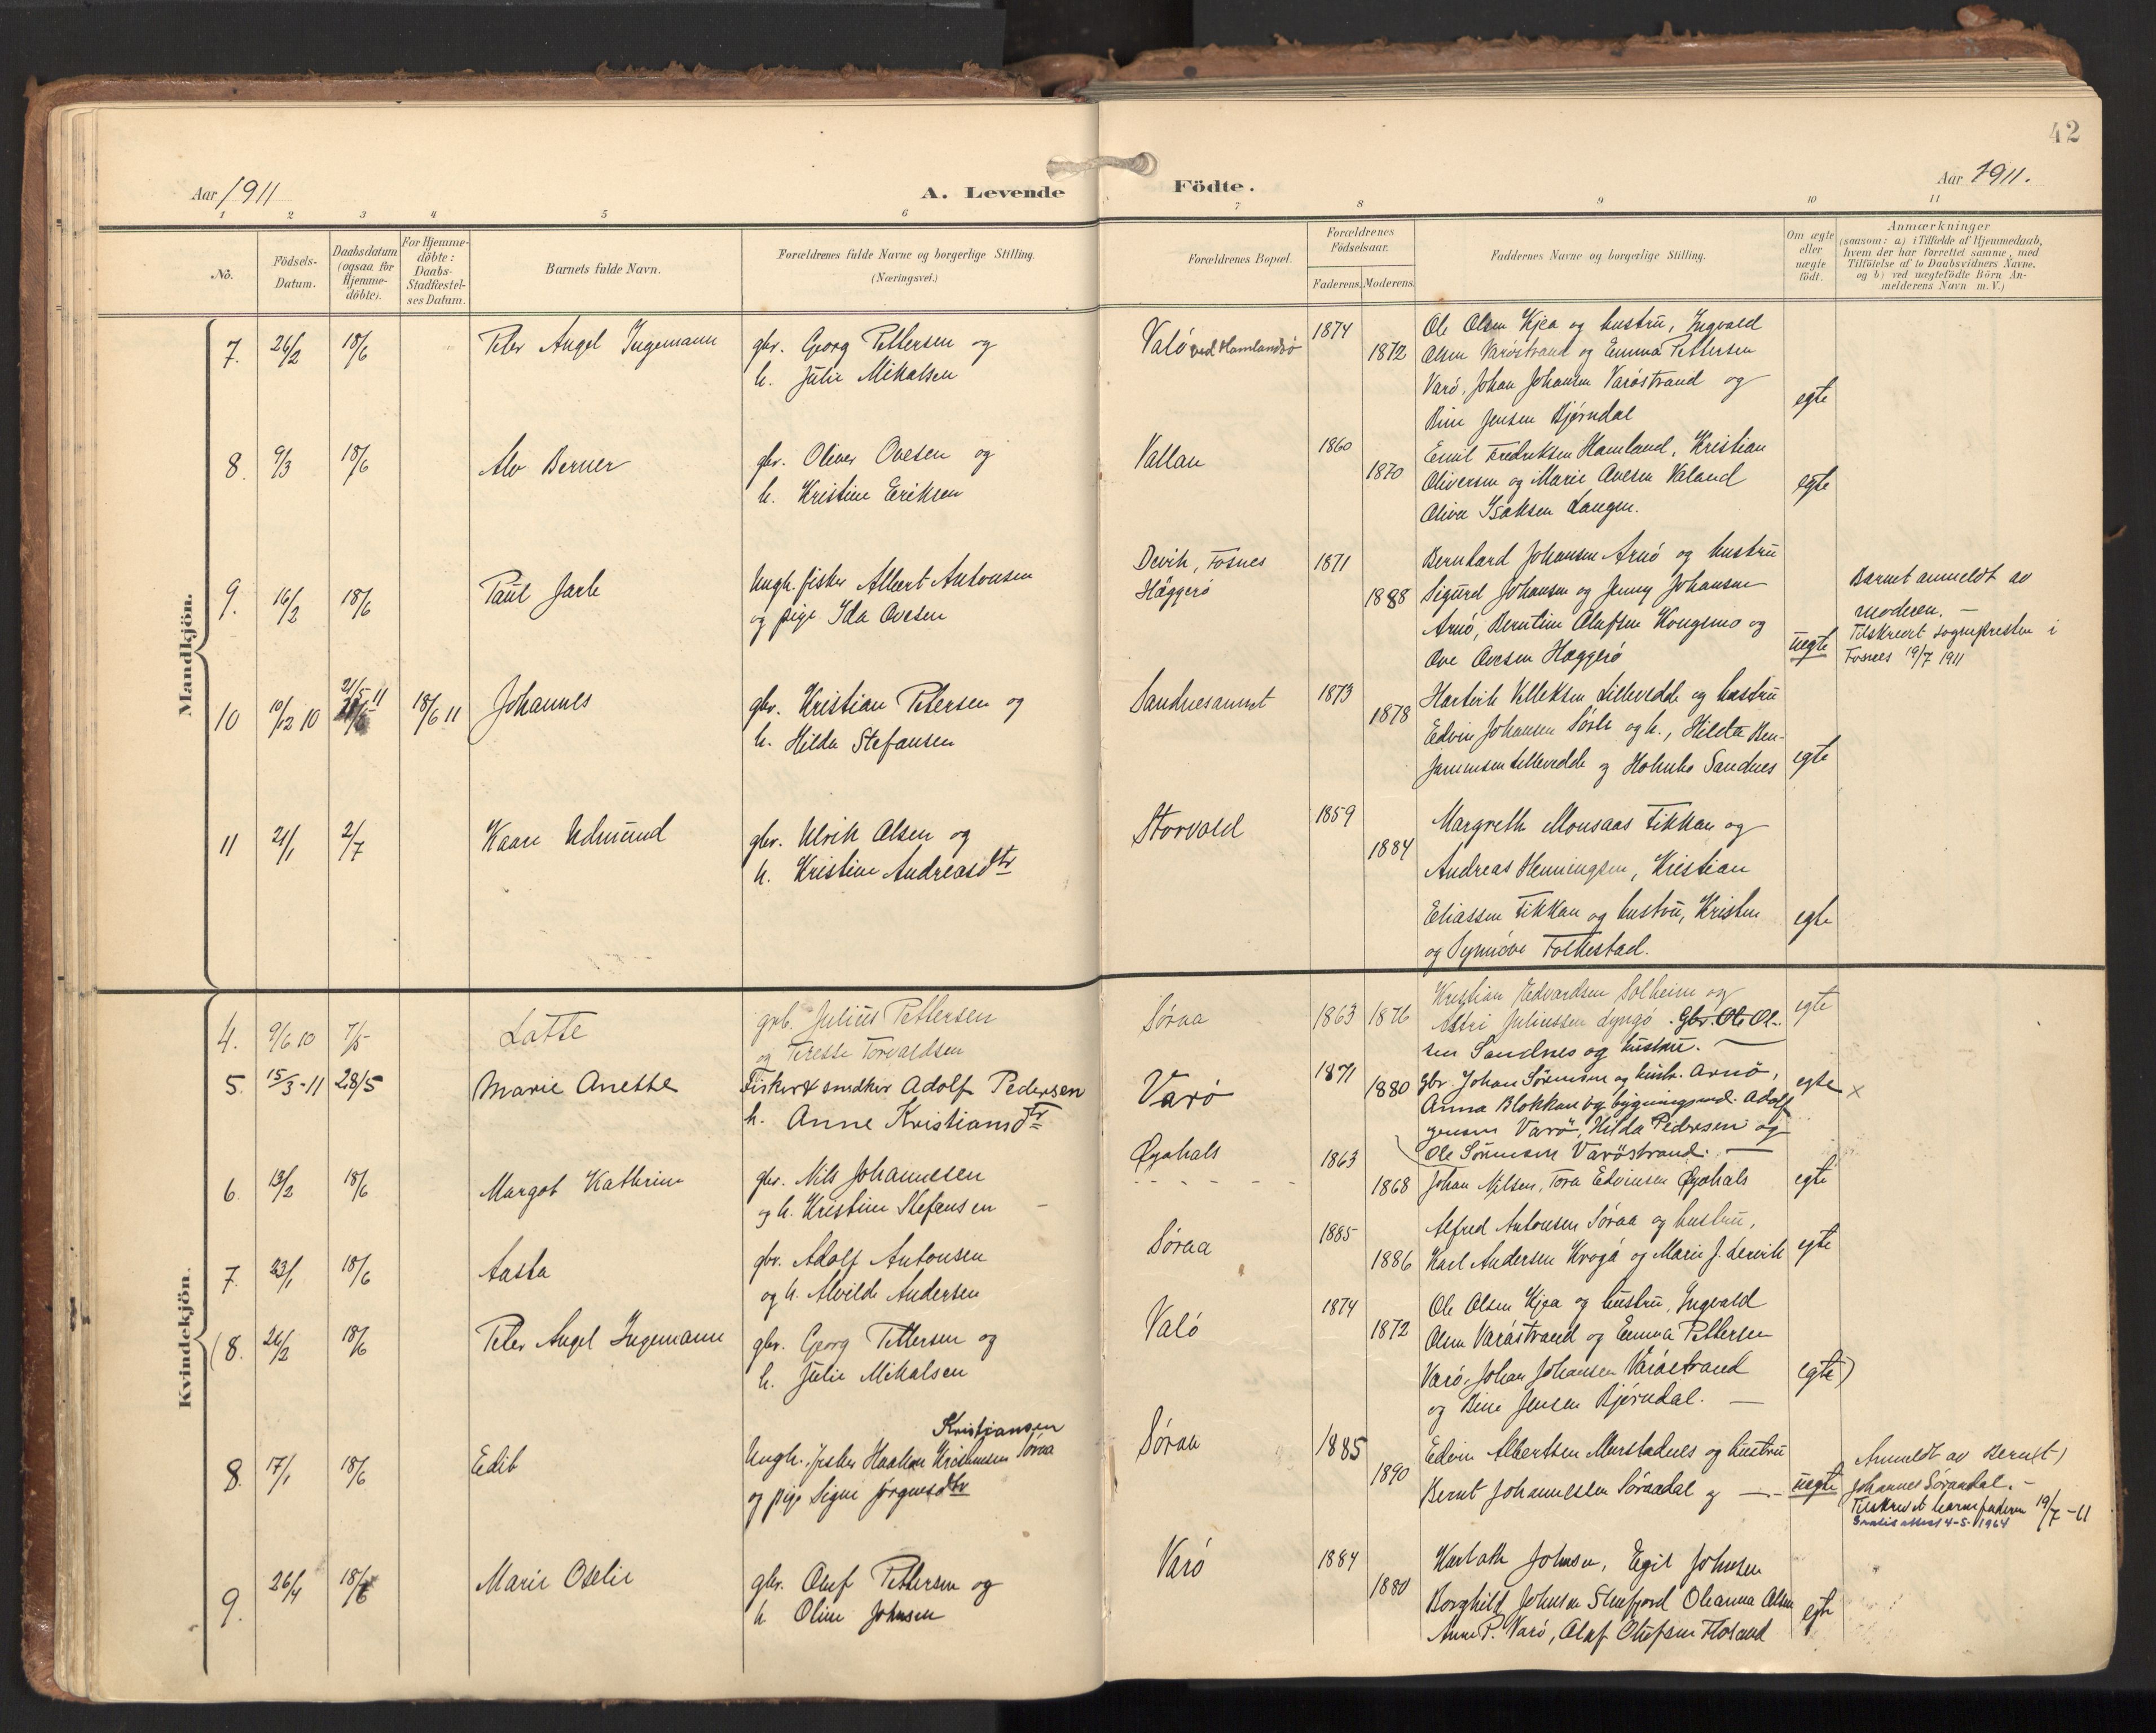 42
Aar 1911
A. Levende
Födte.
Aar 1911.
1 2 3 4 5 6 7 8 9 10 11
No.
Födsels-
Datum.
Daabsdatum
(ogsaa for
Hjemme-
döbte).
For Hjemme-
döbte:
Daabs-
Stadfæstel-
ses Datum.
Barnets fulde Navn.
Forældrenes fulde Navne og borgerlige Stilling.
(Næringsvei.)
Forældrenes Bopæl.
Forældrenes
Födselsaar.
Faderens. Moderens.
Faddernes Navne og borgerlige Stilling.
Om ægte
eller
uægte
födt.
Anmærkninger
(saasom: a) i Tilfælde af Hjemmedaab,
hvem der har forrettet samme, med
Tilföielse af to Daabsvidners Navne,
og b) ved uægtefödte Börn An-
melderens Navn m. V.)
Mandkjön.
7. 26/2 18/6 Peter Angel Ingemann
gbr. Georg Pettersen og
h. Julie Mikalsen
Valö ved Hamlandsö
1874 1872
Ole Olsen Kjea og hustru, Ingvald
Olsen Varöstrand og Emma Pettersen
Varö, Johan Johansen Varöstrand og
Bine Jensen Bjørndal
egte
8. 9/3 18/6 Alv Berner
gbr. Oliver Ovesen og
h. Kristine Eriksen
Vallan
1860 1870
Emil Fredriksen Hamland, Kristian
Oliversen og Marie Ovesen Valand
Oliver Isaksen Langen.
egte
9. 16/2 18/6 Paul Jarle
Ungk. fisker Albert Antonsen
og pige Ida Ovesen
Devik, Fosnes
Häggerö
1871 1888
Bernhard Johansen Arnö og hustru
Sigurd Johansen og Jenny Johansen
Arnö, Berntine Olufsen Kongsmo og
Ove Ovesen Haggerö
uegte
Barnet anmeldt av
moderen. —
Tilskrevet sognepresten i
Fosnes 19/7 1911
10 10/12 10 21/5 11 18/6 11 Johannes
gbr. Kristian Petersen og
h. Hilda Stefansen
Sandnesaunet
1873 1878
Hartvik Velleksen Lillevedde og hustru
Edvin Johansen Sörle og h., Hilda Ben-
jaminsen Lillevedde og Sandnes
egte
11 21/1 2/7 Kaare Edmund
gbr. Ulrik Olsen og
h. Kristine Andreasdtr
Storvald
1859 1884
Margrethe Monsaas Fikkan og
Andreas Henningsen, Kristian
Eliassen Fikkan og hustru, Kristen
og Synnöve Folkestad.
egte
Kvindekjön.
4. 9/6 10 7/5 Lotte
grb. Julius Pettersen
og Terese Torvaldsen
Söraa
1863 1876
Kristian Edvardsen Solheim og
Astri Juliussen Lyngö. Gbr. Ole Ol-
sen Sandnes og hustru. —
egte
5. 15/3-11 28/5 Marie Anette
Fisker & snedker Adolf Pedersen
h. Anne Kristiansdtr
Varö
1871 1880
Gbr. Johan Sörensen og hustr. Arnö,
Anna Blokkan og bygningsmd. Adolf
Jensen Varö, Hilda Pedersen og
Ole Sörensen Varöstrand. —
egte x
6. 13/2 18/6 Margot Kathrine
gbr. Nils Johannesen
og h. Kristine Stefansen —
Öyahals
1863 1868
Johan Nilsen, Tora Edvinsen Öyahals
egte
7. 23/1 18/6 Aasta
gbr. Adolf Antonsen
og h. Alvilde Andersen
Söraa
1885 1886
Alfred Antonsen Söraa og hustru,
Karl Andersen Krogå og Marie J. Lervik
egte
(8. 26/2 18/6 Peter Angel Ingemann
gbr. Georg Pettersen og
h. Julie Mikalsen
Valö
1874 1872
Ole Olsen Kjea og hustru, Ingvald
Olsen Varöstrand og Emma Pettersen
Varö, Johan Johansen Varöstrand
og Bine Jensen Bjørndal. —
egte)
8. 17/1 18/6 Edit
Kristiansen
Ungk. fisker Haakon Söraa
og pige Signe Jörgensdtr
Söraa
1885 1890
Edvin Albertsen og hustru
Bernt Johannessen Söraadal og —
uegte
Anmeldt av Bernt
Johannes Söraadal. —
Tilskrevet barnefaderen 19/7-11
Gratis attest 4-5-1964
9. 26/4 18/6 Marie Oselie
gbr. Oluf Pettersen og
h Oline Johnsen
Varö
1884 1880
Johnsen, Egil Johnsen
Borghild Johnsen Olsen
Anne P. Varö, Olaf Olufsen
egte